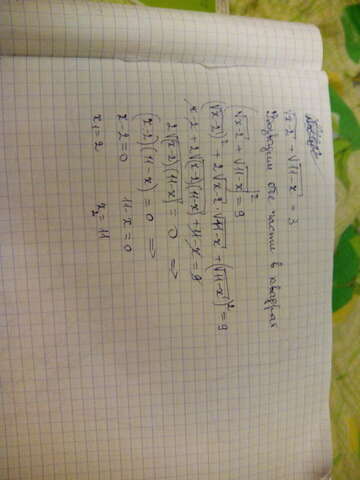 √x-2 + √11-x = 3
Возводим обе части в квадрат
(√x-2 + √11-x)² = 9
(√x-2)² + 2√x-2 · √11-x + (√11-x)² = 9
x-2 + 2√(x-2)(11-x) + 11-x = 9
2√(x-2)(11-x) = 0 =>
(x-2)(11-x) = 0 =>
x-2=0 11-x=0
x₁=2 x₂=11